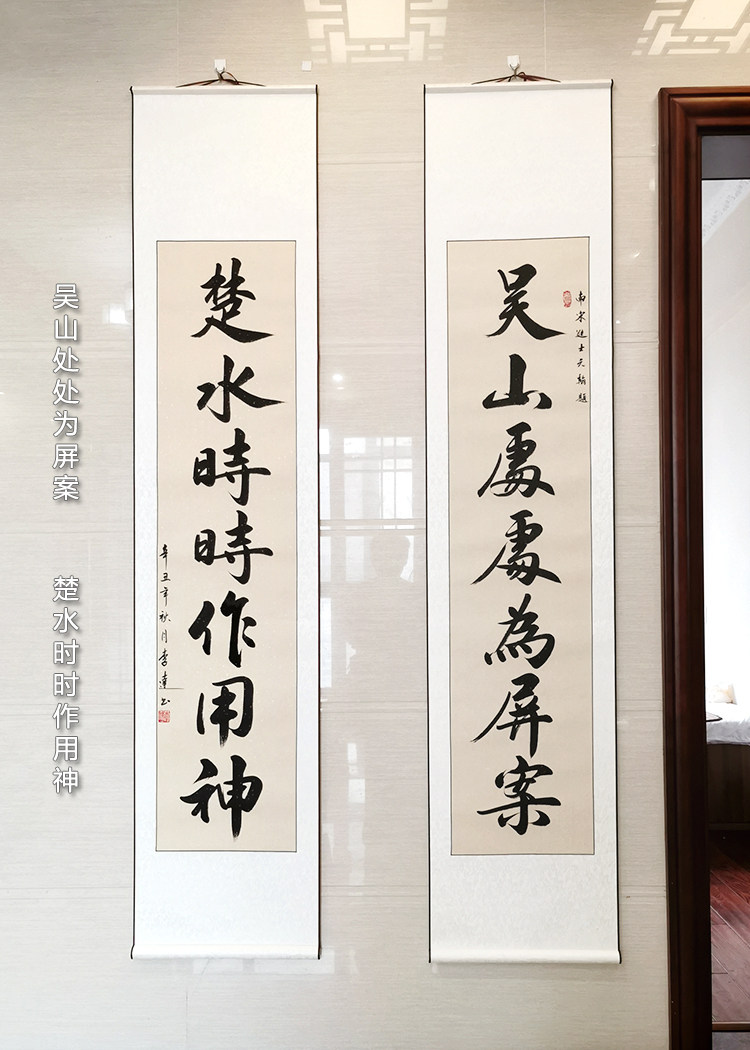 吴山处处为屏案
楚水时时作用神
吳山處處為屏案
南宋進士天翰題
楚水時時作用神
辛丑年秋月李達书